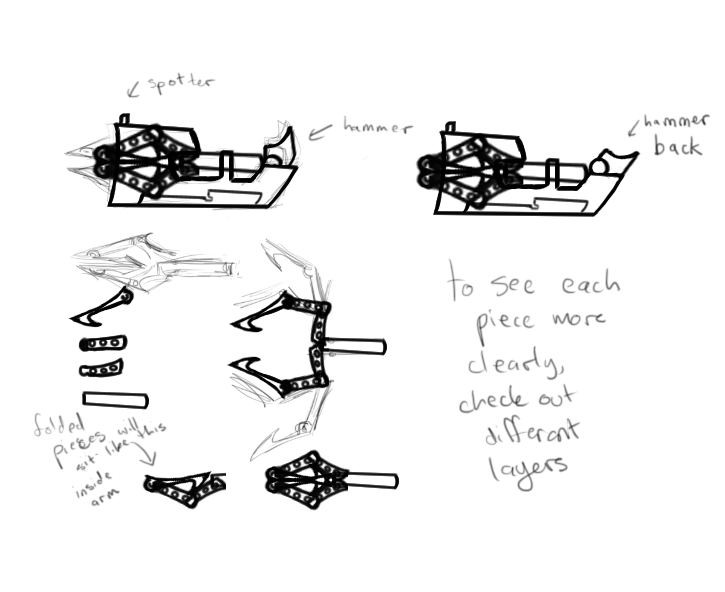 spotter
hammer
hammer
back
to see each
piece more
clearly,
check out
different
layers
folded
pieces will
sit like this
inside
arm